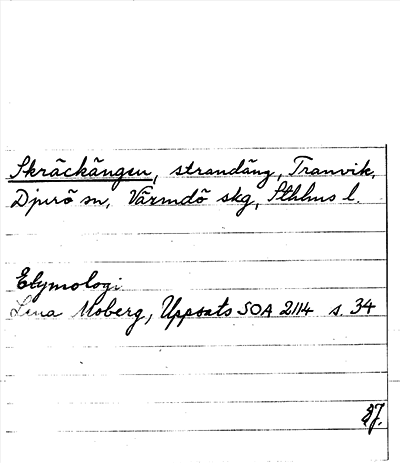 Skräckängen, strandäng, Tranvik,
Djurö sn, Värmdö skg, Sthlms l.
Etymologi
Lena Moberg, Uppsats SOA 2114 s. 34